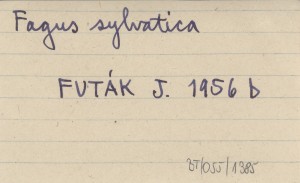 Fagus sylvatica
FUTÁK J. 1956 b
BT/055/1385